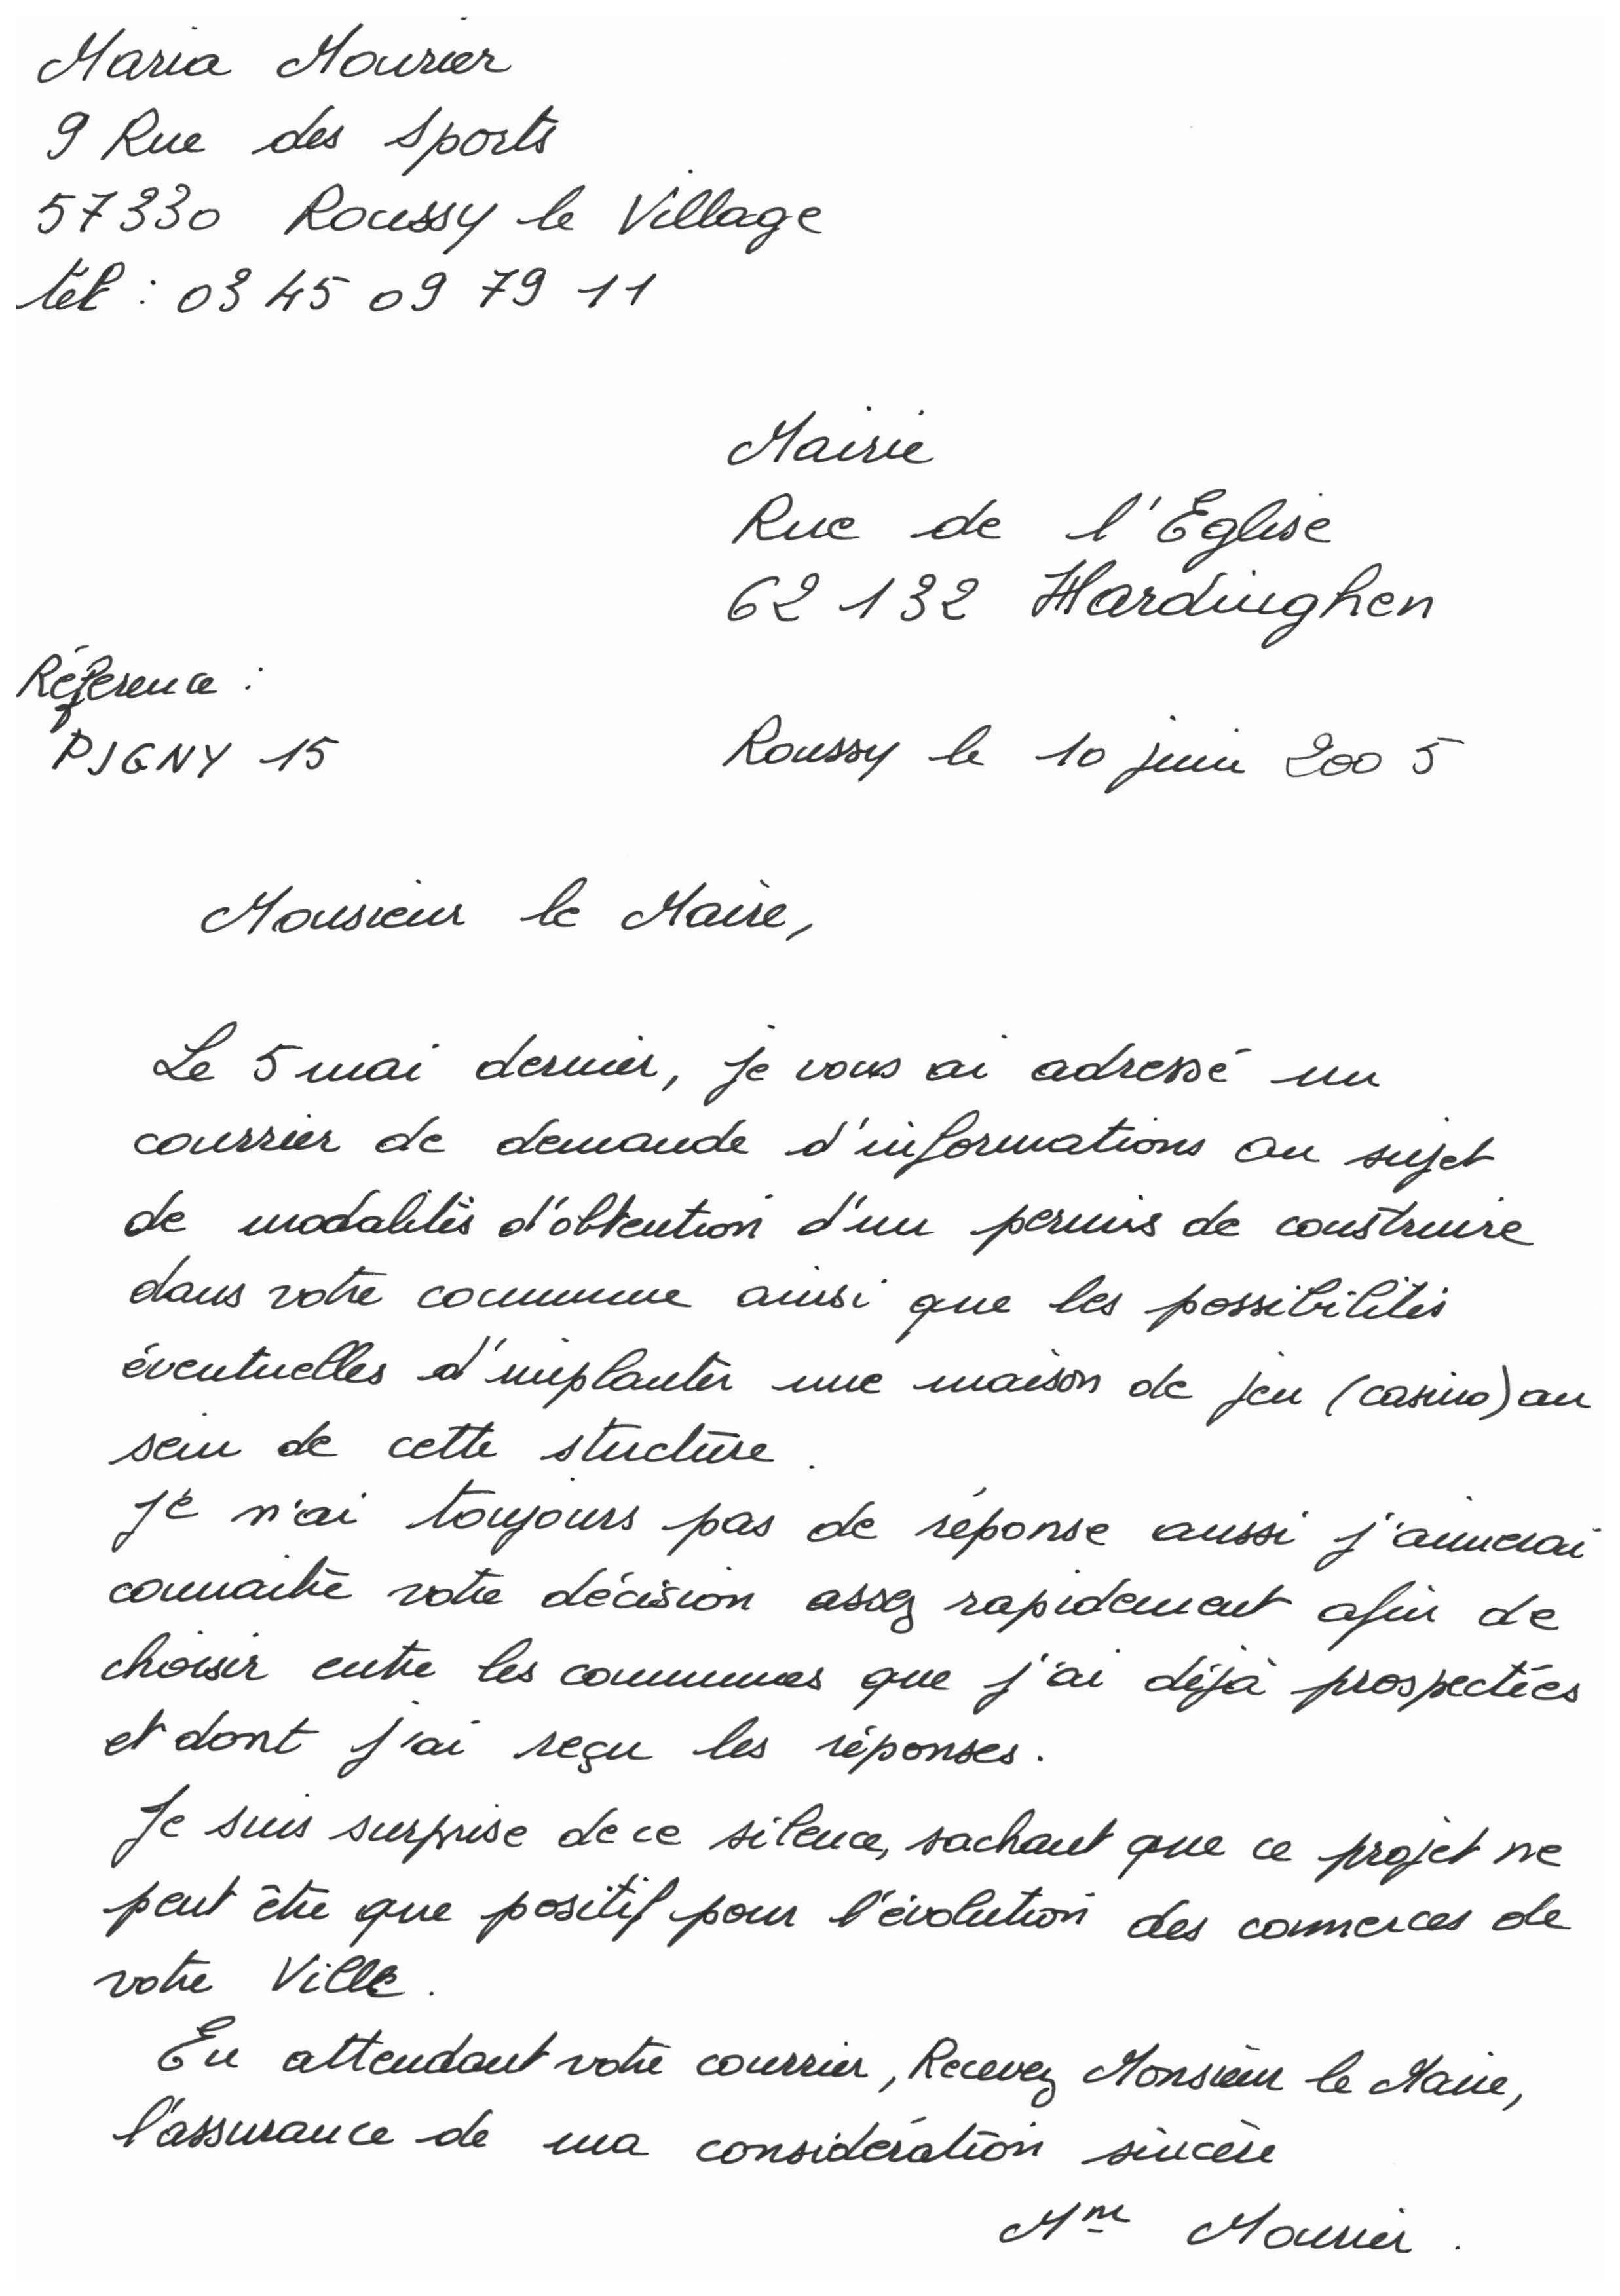 Maria Mourier
9 Rue des Sports
57330 Roussy le Village
tél : 03 45 09 79 11
Mairie
Rue de l'Eglise
62 132 Hardinghen
Référence :
PJGNY 15
Roussy le 10 juin 2005
Monsieur le Maire,
Le 5 mai dernier, je vous ai adressé un
courrier de demande d'informations au sujet
de modalités d'obtention d'un permis de construire
dans votre commune ainsi que les possibilités
éventuelles d'implanter une maison de jeu (casino) au
sein de cette stucture.
Je n'ai toujours pas de réponse aussi j'aimerai
connaitre votre décision assez rapidement afin de
choisir entre les communes que j'ai déjà prospectées
et dont j'ai reçu les réponses.
Je suis surprise de ce silence, sachant que ce projet ne
peut être que positif pour l'évolution des commerces de
votre Ville.
En attendant votre courrier, Recevez Monsieur le Maire,
l'assurance de ma considération sincère
Mme Mourier.